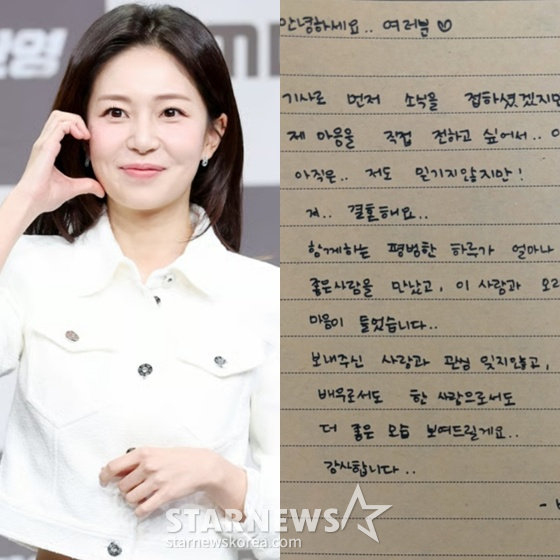 안녕하세요.. 여러분 ♡
기사로 먼저 소식을 접하셨겠지만
제 마음을 직접 전하고 싶어서..
아직은.. 저도 믿기지않지만!
저.. 결혼해요..
함께하는 평범한 하루가 얼마나
좋은사람을 만났고, 이 사람과 오래
마음이 들었습니다..
보내주신 사랑과 관심 잊지않고,
배우로서도 한 사람으로서도
더 좋은 모습 보여드릴게요..
감사합니다..
STARNEWS
starnewskorea.com